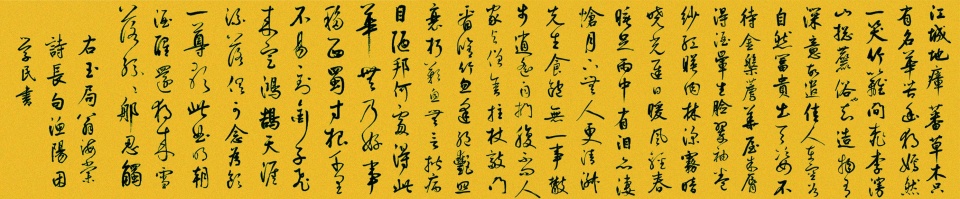 江城地瘴蕃草木只
有名華苦幽獨嫣然
一笑竹籬間桃李漫
山揔麤俗也知造物有
深意故遣佳人在空谷
自然富貴出天姿不
待金槃薦華屋朱脣
得酒暈生臉翠袖卷
紗紅暎肉林深霧暗
曉光遲日暖風輕春
睡足雨中有泪亦淒
愴月下無人更清淑
先生食飽無一事散
步逍遙自捫腹不問人
家與僧舍拄杖敲門
看脩竹忽逢絕艷照
衰朽歎息無言揩病
目陋邦何處得此
華無乃好事
移西蜀寸根千里
不易到銜子飛
來定鴻鵠天涯
流落俱可念為飲
一尊歌此曲明朝
酒醒還獨來雪
落紛紛那忍觸
右玉局翁海棠
詩長句漁陽困
學民書